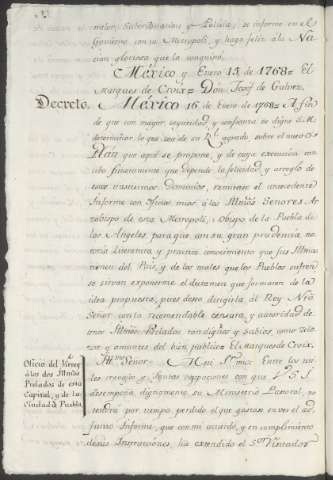 nacion, Subordinacion y Policía, se informe en el
Govierno con su Metropoli, y haga feliz a la Na-
cion gloriosa que la conquistó.
México y Enero 15 de 1768= El
Marques de Croix= Don Josef de Galvez.
Decreto. México 16 de Enero de 1768= A fin
de que con mayor seguridad y confianza se digne S.M.
determinar lo que sea de su Rl. agrado, sobre el nuevo
Plan que aqui se propone, y de cuya execucion con-
cibo enteramente que depende la felicidad, y arreglo de
estos vastisimos Dominios, remitase el antecedente
Informe con Oficios mios a los Illmos. Señores Ar-
zobispo de esta Metropoli, y Obispo de la Puebla de
los Angeles, para que con su gran prudencia, no-
toria Literatura, y practico conocimiento que sus Illmas.
tienen del País, y de los males que los Pueblos sufren
se sirvan exponerme el dictamen que formaren de la
idea propuesta, pues deseo dirigirla al Rey Nro.
Señor con la recomendable censura, y autoridad de
unos Illmos. Prelados tan dignos, y sabios, como zelo-
sos, y amantes del bien publico. El Marques de Croix.
Oficio del Virrey
a los dos Illmos.
Prelados de esta
Capital, y de la
Ciudad de Puebla.
Illmo. Señor= Mui Sr. mio: Entre las mu-
chas y continuas ocupaciones con que V.S.I.
desempeña dignamente su Ministerio Pastoral, no
sentirá por tiempo perdido el que gastare en ver el ad-
junto Informe, que con mi acuerdo, y en cumplimiento
de sus Instrucciones, ha extendido el Sor. Visitador